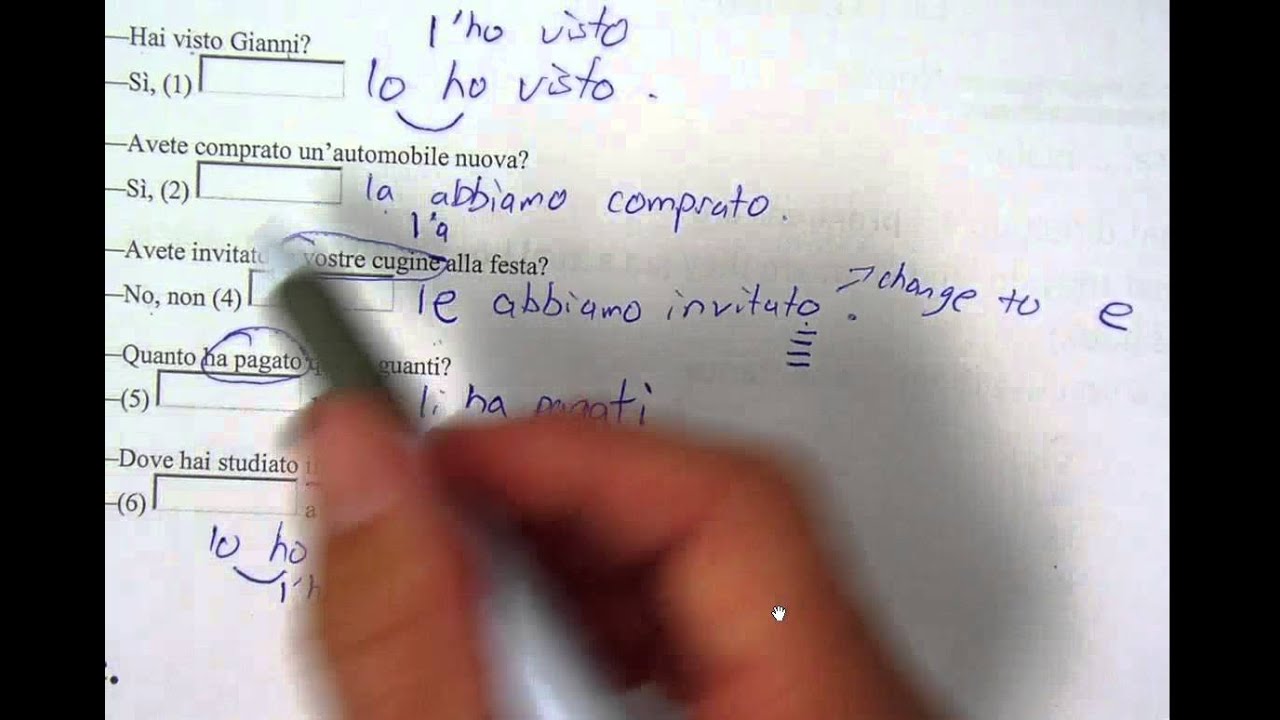 l'ho visto
—Hai visto Gianni?
—Sì, (1) lo ho visto.
—Avete comprato un'automobile nuova?
—Sì, (2) la abbiamo comprato.
l'a
—Avete invitato vostre cugine alla festa?
—No, non (4) le abbiamo invitato. → change to e
—Quanto ha pagato guanti?
—(5) li ha pagati
—Dove hai studiato
—(6) a
lo ho
l'h